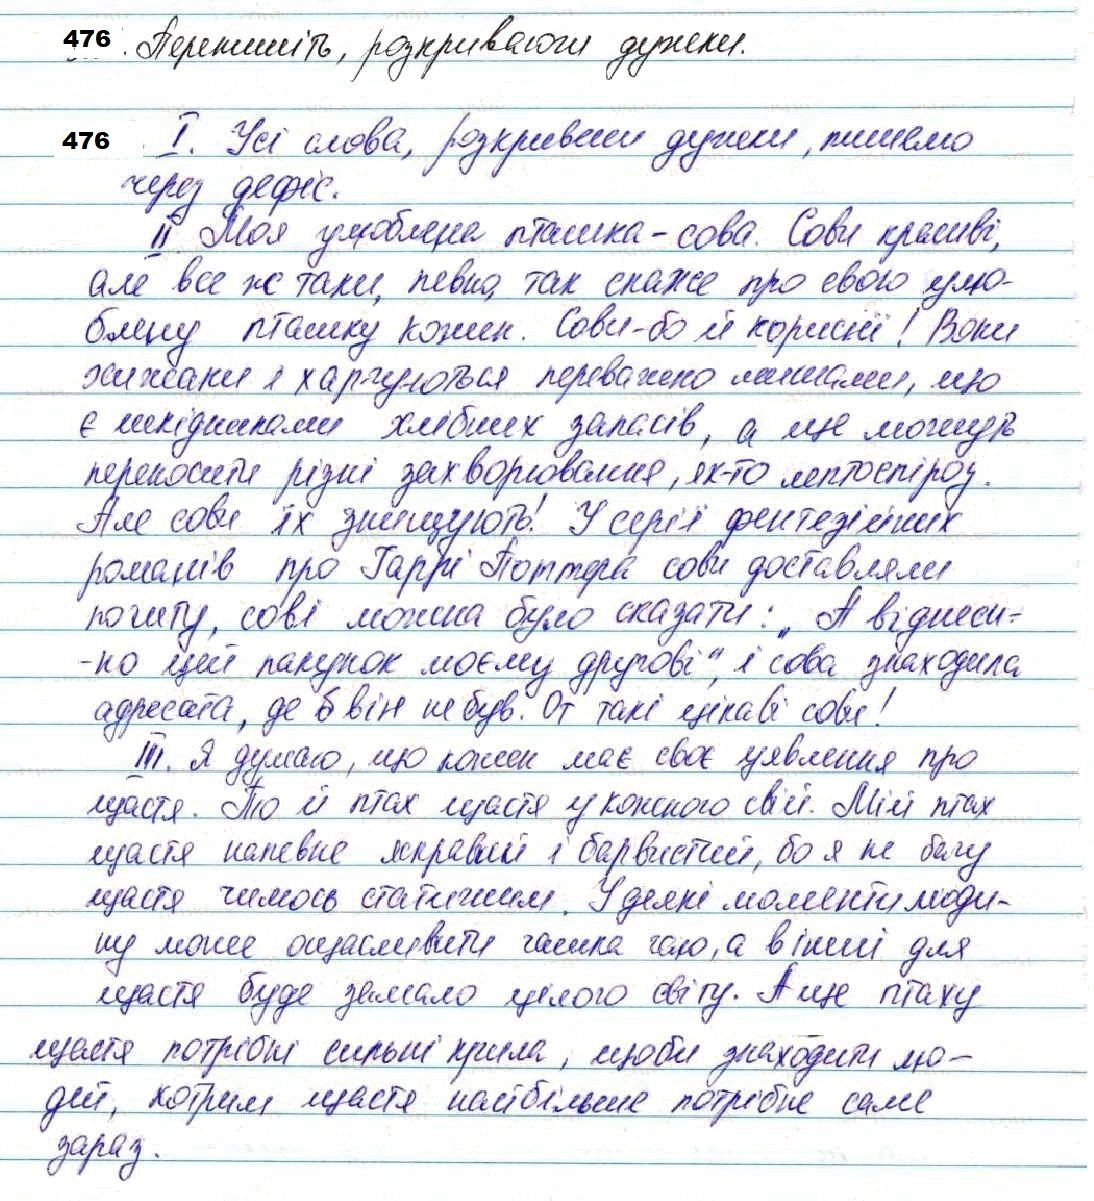 476. Перепишіть, розкриваючи дужки.
476 I. Усі слова, розкривши дужки, пишемо
через дефіс.
II Моя улюблена пташка - сова. Сови красиві,
але все ж таки, певно, так скаже про свою улю-
блену пташку кожен. Сови-бо й корисні! Вони
хижаки і харчуються переважно мишами, що
є шкідниками хлібних запасів, а ще можуть
переносити різні захворювання, як-то лептоспіроз.
Але сови їх знищують! У серії фентезійних
романів про Гаррі Поттера сови доставляли
пошту, сові можна було сказати: „А віднеси-
-но цей пакунок моєму другові", і сова знаходила
адресата, де б він не був. От такі цікаві сови!
III. Я думаю, що кожен має своє уявлення про
щастя. То й птах щастя у кожного свій. Мій птах
щастя напевне яскравий і барвистий, бо я не бачу
щастя чимось статичним. У деякі моменти люди-
ну може ощасливити чашка чаю, а в інші для
щастя буде замало цілого світу. А ще птаху
щастя потрібні сильні крила, щоби знаходити лю-
дей, котрим щастя найбільше потрібне саме
зараз.